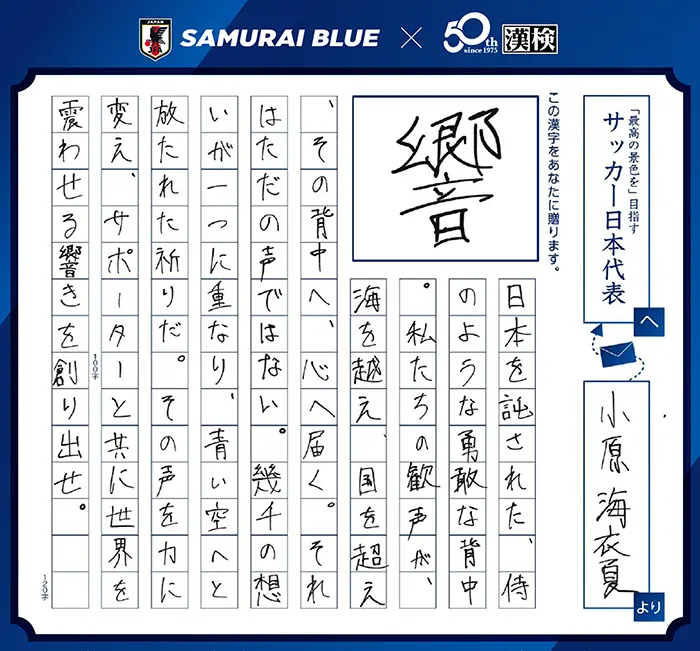 JAPAN
JFA
SAMURAI BLUE × 50th since1975 漢検
「最高の景色を」目指す
サッカー日本代表
へ
小原 海衣夏
より
この漢字をあなたに贈ります。
響
日本を託された、侍
のような勇敢な背中
。私たちの歓声が、
海を越え、国を超え
、その背中へ、心へ届く。それ
はただの声ではない。幾千の想
いが一つに重なり、青い空へと
放たれた祈りだ。その声を力に
変え、サポーターと共に世界を
100字
震わせる響きを創り出せ。
120字